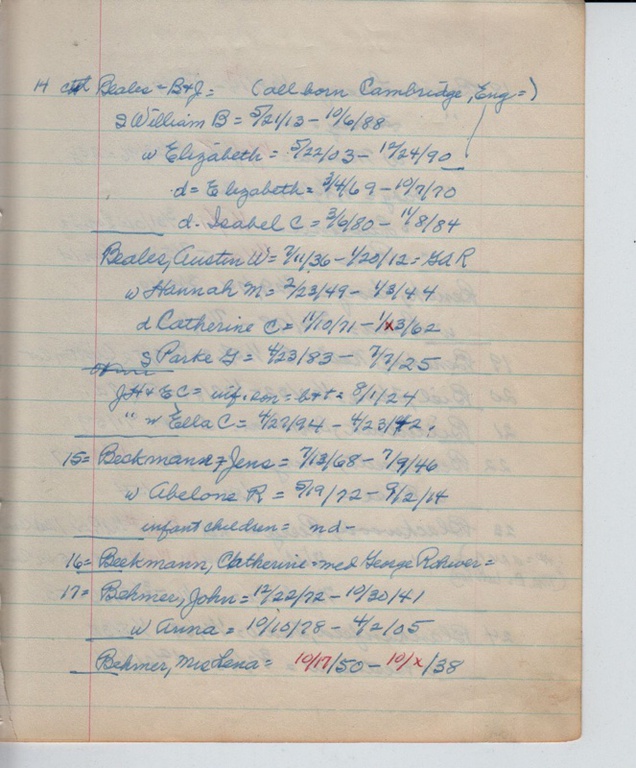 14 Beales - B+J = (all born Cambridge, Eng =)
S William B = 5/21/13 - 10/6/88
w Elizabeth = 5/22/03 - 12/24/90
d = Elizabeth = 3/4/69 - 10/7/70
d. Isabel C = 3/6/80 - 11/8/84
Beales, Austin W = 7/11/36 - 1/20/12 = GAR
w Hannah M = 2/23/49 - 1/3/44
d Catherine C = 11/10/71 - 1/x3/62
S Parke G = 4/23/83 - 7/7/25
JH + EC = inf. son = b+d = 8/1/24
" w Ella C = 4/27/94 - 4/23/42.
15 = Beckmann = Jens = 7/13/68 - 7/9/46
w Abelone R = 5/19/72 - 9/2/14
infant children = nd -
16 = Beekmann, Catherine = med George Rohwer =
17 = Behmer, John = 12/22/72 - 10/30/41
w Anna = 10/10/78 - 4/2/05
Behmer, Mrs Lena = 10/17/50 - 10/x/38